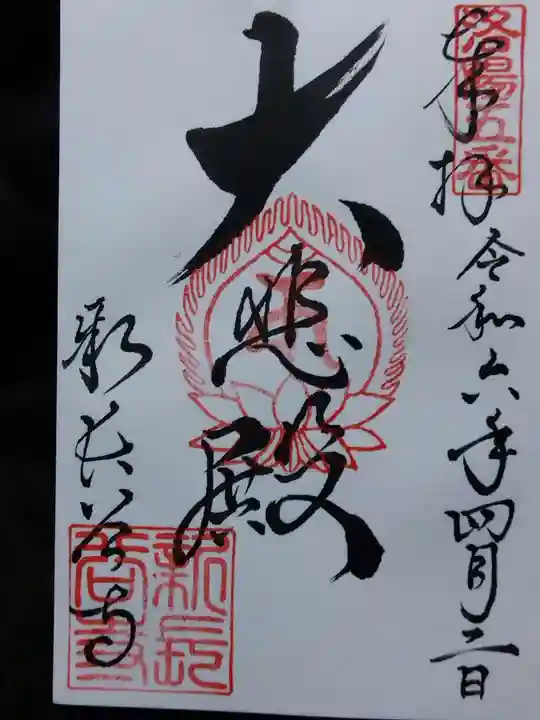 洛陽五番
奉拝 令和六年四月二日
大悲殿
新長谷寺
新長谷寺